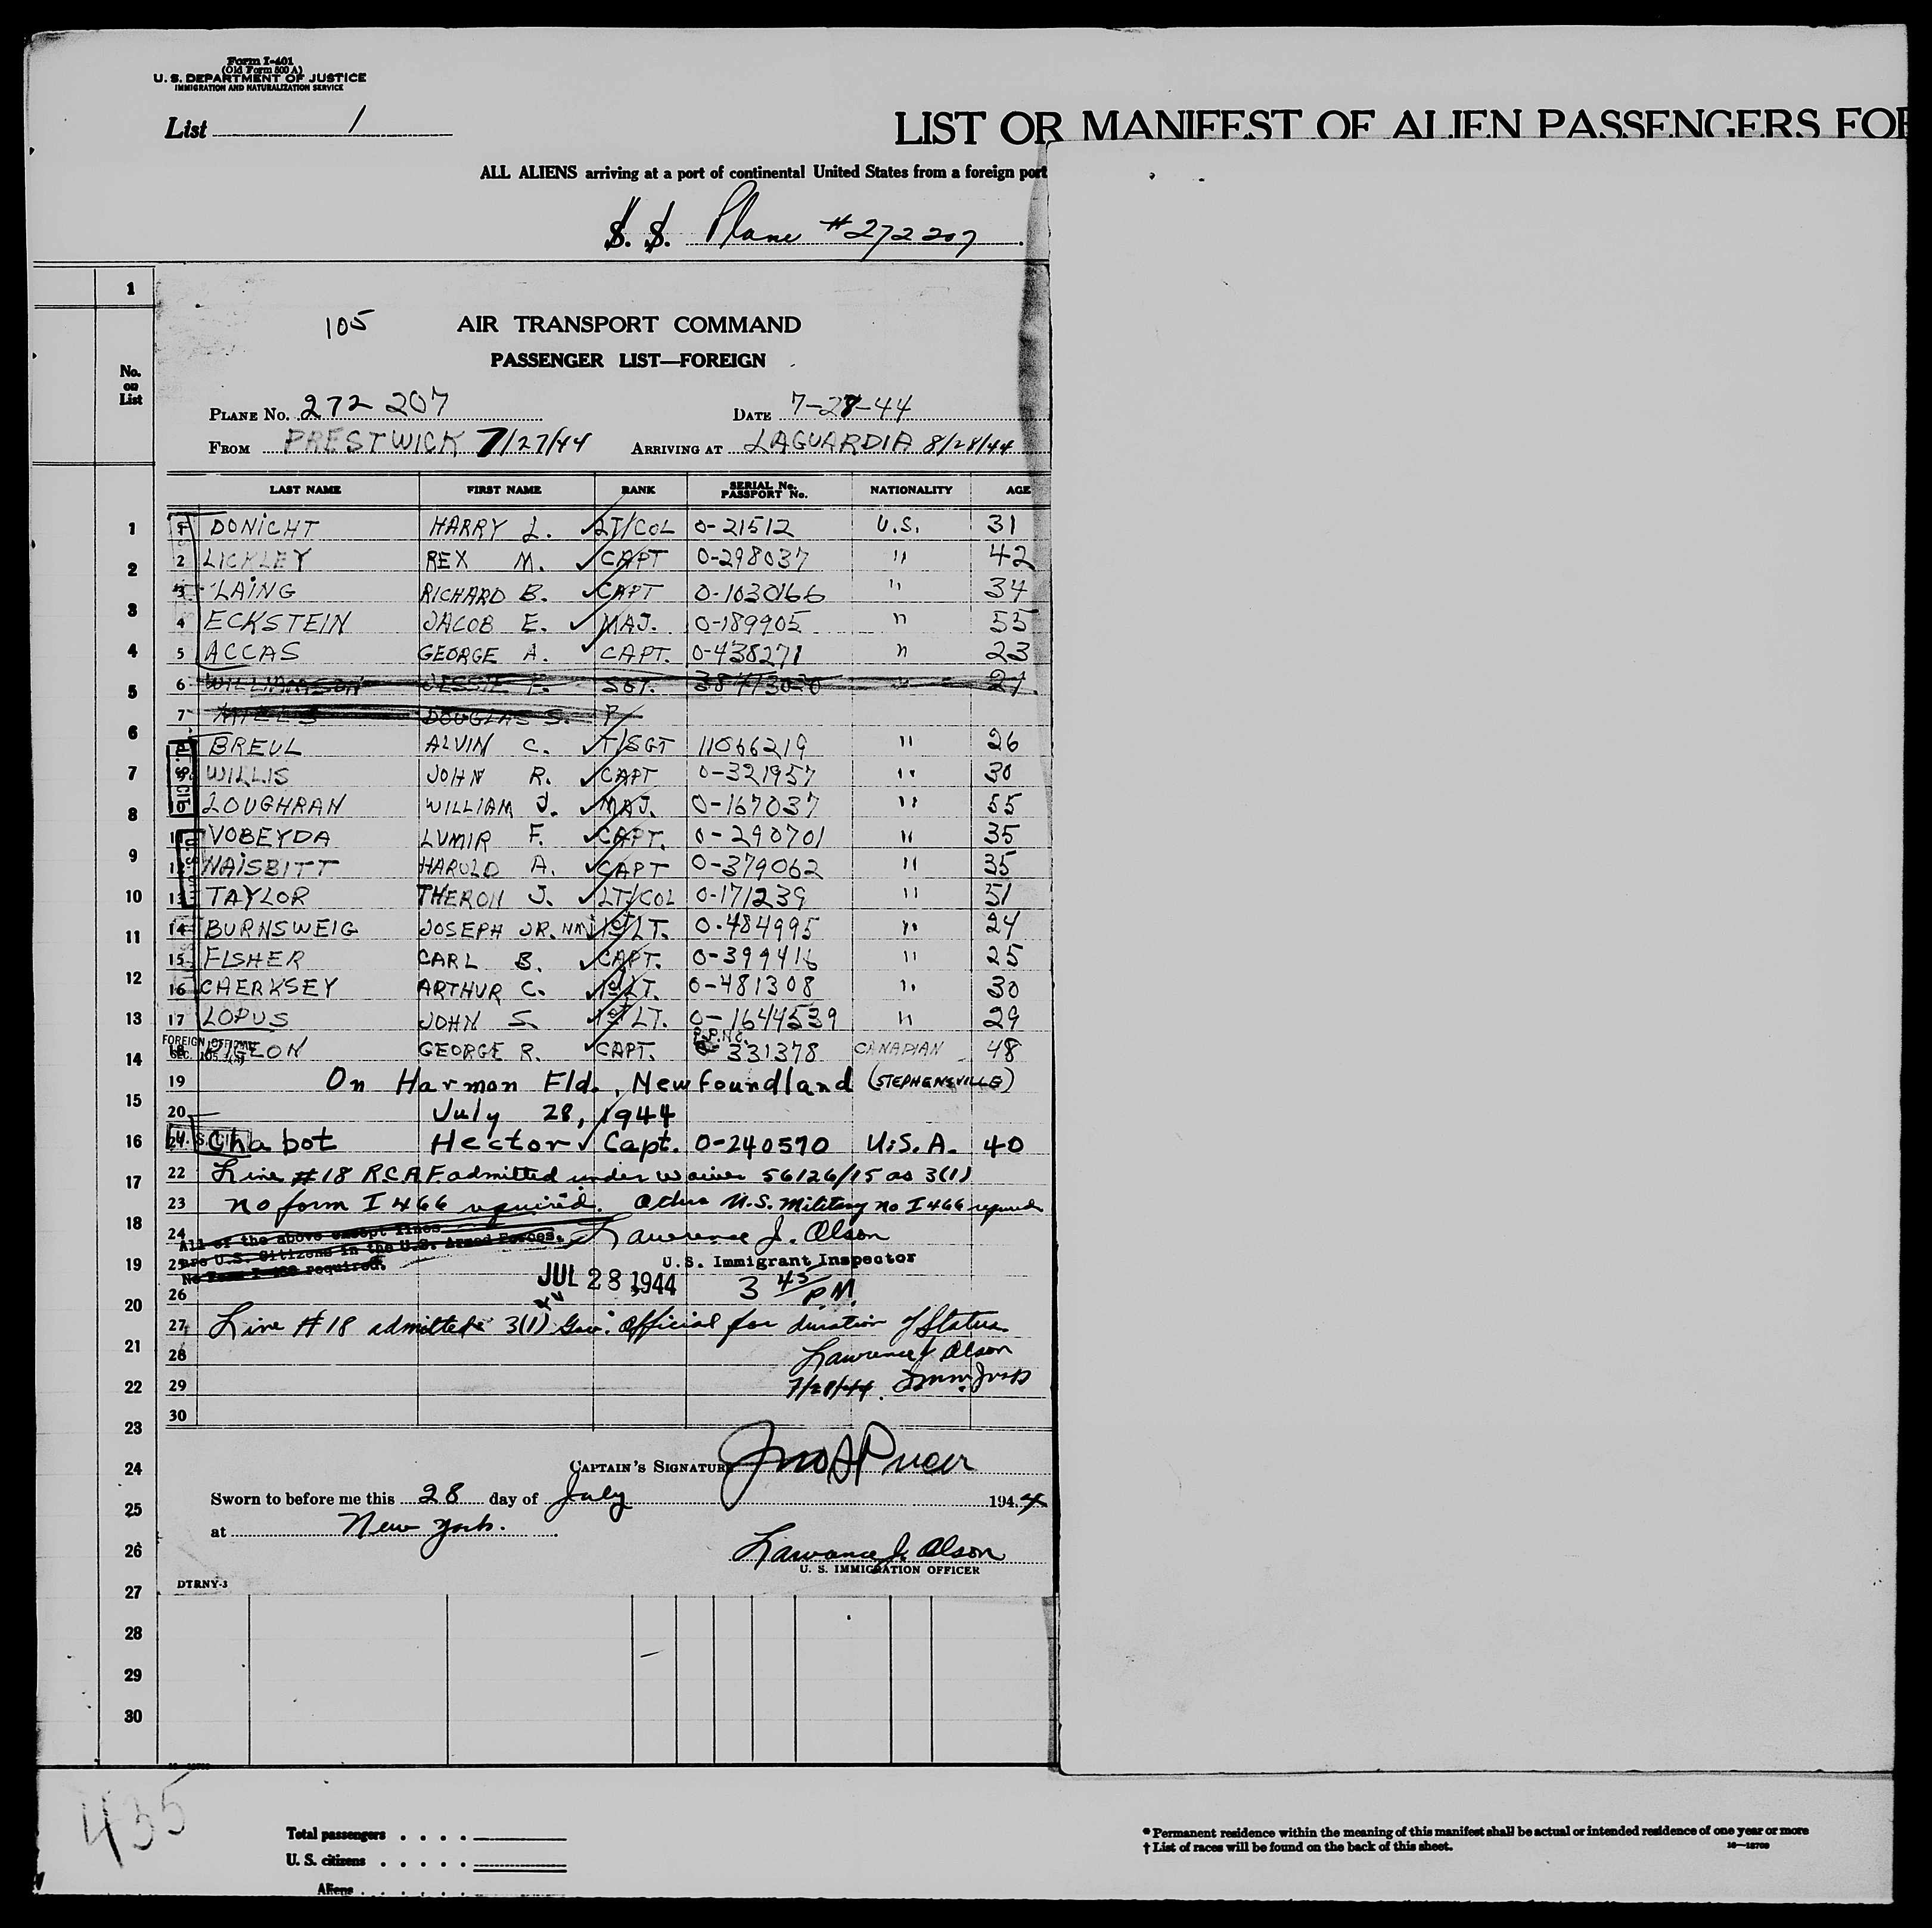 Form I-401
(Old Form 500 A)
U. S. DEPARTMENT OF JUSTICE
IMMIGRATION AND NATURALIZATION SERVICE
List 1
LIST OR MANIFEST OF ALIEN PASSENGERS FOR
ALL ALIENS arriving at a port of continental United States from a foreign port
S. S. Plane #272207
1
No. on List
105 AIR TRANSPORT COMMAND
PASSENGER LIST—FOREIGN
PLANE No. 272 207 DATE 7-28-44
FROM PRESTWICK 7/27/44 ARRIVING AT LAGUARDIA 8/28/44
LAST NAME FIRST NAME RANK SERIAL No. PASSPORT No. NATIONALITY AGE
1 DONICHT HARRY L. LT/COL 0-21512 U.S. 31
2 LICKLEY REX M. CAPT 0-298037 " 42
3 LAING RICHARD B. CAPT 0-1030166 " 34
4 ECKSTEIN JACOB E. MAJ. 0-189905 " 55
5 ACCAS GEORGE A. CAPT. 0-438271 " 23
6 WILLIAMSON JESSIE F. SGT. 38413030 " 21
7 MILLS DOUGLAS S. P
BREUL ALVIN C. T/SGT 11066219 " 26
WILLIS JOHN R. CAPT 0-321957 " 30
LOUGHRAN WILLIAM J. MAJ. 0-167037 " 55
VOBEYDA LUMIR F. CAPT. 0-290701 " 35
NAISBITT HAROLD A. CAPT 0-379062 " 35
13 TAYLOR THERON J. LT/COL 0-171239 " 51
14 BURNSWEIG JOSEPH JR. NMI 1st LT. 0-484995 " 24
15 FISHER CARL B. CAPT. 0-399416 " 25
16 CHERKSEY ARTHUR C. 1st LT. 0-481308 " 30
17 LOPUS JOHN S. 1st LT. 0-1644539 " 29
FOREIGN OFFICIAL
18 PIGEON GEORGE R. CAPT. P.P.No. 331378 CANADIAN 48
19 On Harmon Fld., Newfoundland (STEPHENSVILLE)
20 July 28, 1944
21 Chabot Hector Capt. 0-240570 U.S.A. 40
22 Line #18 R.C.A.F. admitted under waiver 56126/15 as 3(1)
23 no form I 466 required. Other U.S. Military no I 466 required
24 All of the above except lines Lawrence J. Olson
25 are U.S. Citizens in the U.S. Armed Forces. U.S. Immigrant Inspector
No Form I-466 required.
26 JUL 28 1944 3 45 P.M.
27 Line #18 admitted 3(1) Gov. Official for duration of Status.
28 Lawrence J. Olson
29 7/28/44. Imm. Insp
30
CAPTAIN'S SIGNATURE
Sworn to before me this 28 day of July 1944
at New York.
Lawrence J. Olson
U. S. IMMIGRATION OFFICER
DTRNY-3
1
2
3
4
5
6
7
8
9
10
11
12
13
14
15
16
17
18
19
20
21
22
23
24
25
26
27
28
29
30
435
Total passengers . . . .
U. S. citizens . . . . .
Aliens . . . . . .
* Permanent residence within the meaning of this manifest shall be actual or intended residence of one year or more
† List of races will be found on the back of this sheet.